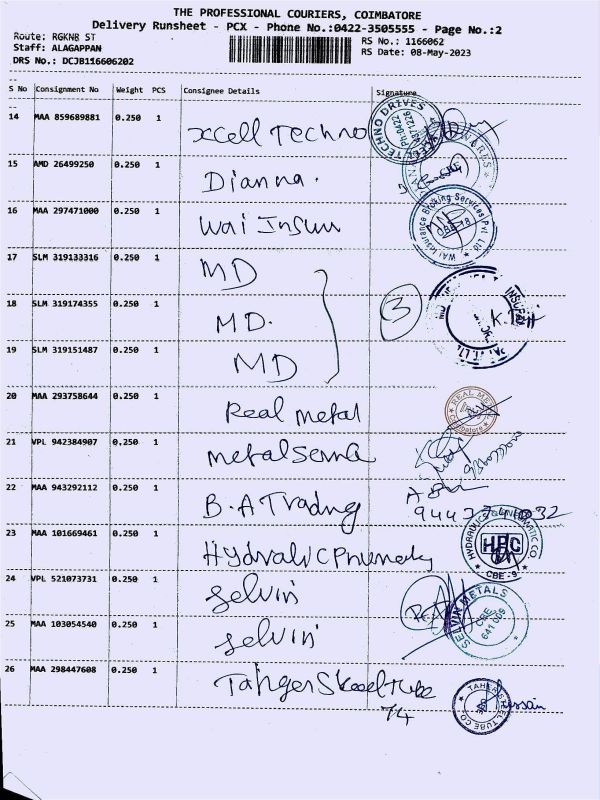 THE PROFESSIONAL COURIERS, COIMBATORE
Delivery Runsheet - PCX - Phone No.:0422-3505555 - Page No.:2
Route: RGKNB ST
RS No.: 1166062
Staff: ALAGAPPAN
RS Date: 08-May-2023
DRS No.: DCJB116606202
S No Consignment No Weight PCS Consignee Details Signature
14 MAA 859689881 0.250 1 Xcell Techno
15 AMD 26499250 0.250 1 Dianna.
16 MAA 297471000 0.250 1 Wai Insuu
17 SLM 319133316 0.250 1 MD
18 SLM 319174355 0.250 1 MD. 3
19 SLM 319151487 0.250 1 MD
20 MAA 293758644 0.250 1 Real metal REAL
21 VPL 942384907 0.250 1
22 MAA 943292112 0.250 1 B.A Trading
23 MAA 101669461 0.250 1 HPC CBE-9
24 VPL 521073731 0.250 1 Selvin
25 MAA 103054540 0.250 1 Selvin SELVIN METALS CBE 641 009
26 MAA 298447608 0.250 1 TAHER STEEL TUBE CO
74